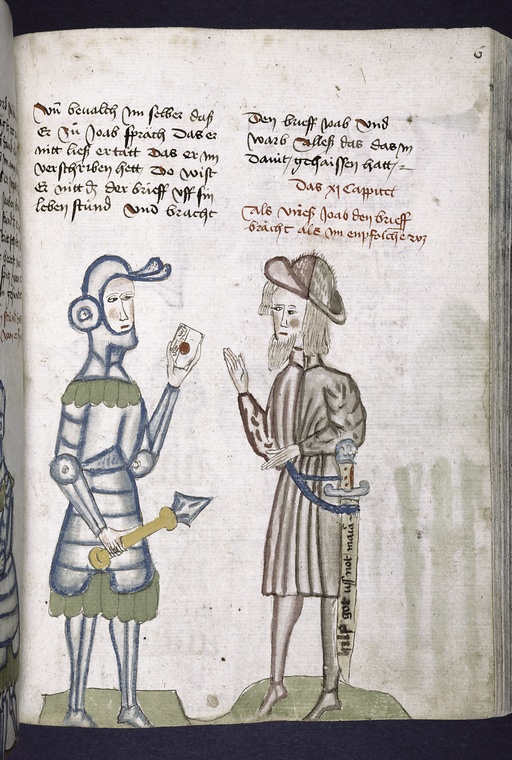 6
vñ bevalch jm selber daß
Er zü Joab spräch Das er
nitt ließ er tätt Das er jm
verschriben hett Do wist
Er nitt dz der brieff vff sin
leben stünd Vnd bracht
Den brieff Joab Vnd
warb Alleß das das jm
Damit gehaissen hatt
Das xj Cappitel
Als vrieß Joab den brieff
brächt als jm enpfolche
hilf got uß not maria